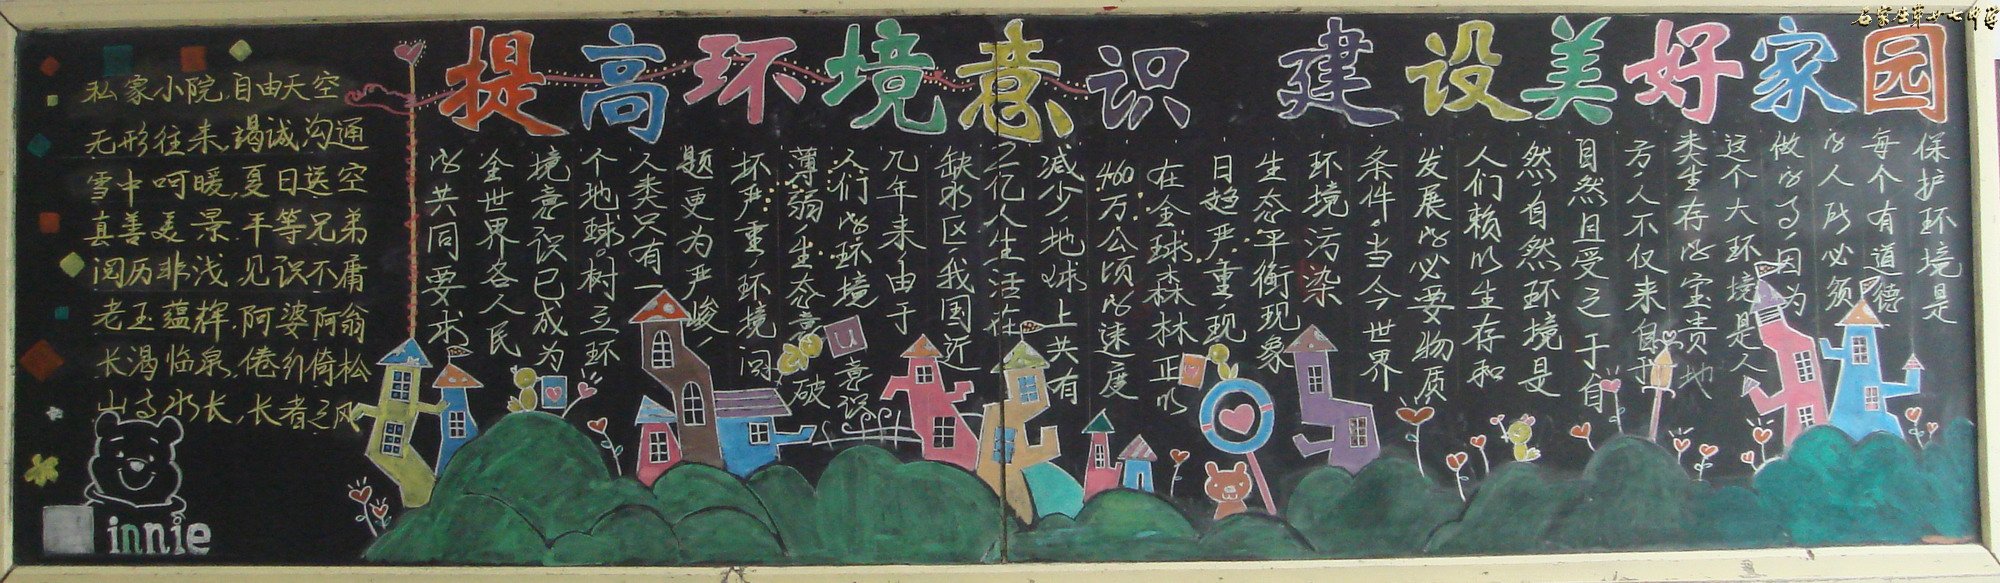 石家庄第廿七中学
提高环境意识 建设美好家园
保护环境是
每个有道德
的人所必须
做的事,因为
这个大环境是人
类生存的宝贵地
方,人不仅来自于
自然且受之于自
然,自然环境是
人们赖以生存和
发展的必要物质
条件。当今世界
环境污染
生态平衡现象
日趋严重,现
在全球森林正以
460万公顷的速度
减少,地球上共有
二亿人生活在
缺水区,我国近
几年来,由于
人们的环境意识
薄弱,生态破
坏严重,环境问
题更为严峻,
人类只有一
个地球。树立环
境意识已成为
全世界各人民
的共同要求
私家小院,自由天空
无形往来,竭诚沟通
雪中呵暖,夏日送空
真善美景,平等兄弟
阅历非浅,见识不庸
老玉蕴辉,阿婆阿翁
长渴临泉,倦行倚松
山高水长,长者之风
innie
u